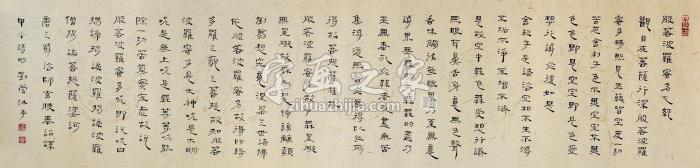 般若波羅蜜多心經
觀自在菩薩行深般若波羅
蜜多時照見五蘊皆空度一切
苦厄舍利子色不異空空不異
色色即是空空即是色受
想行識亦復如是
舍利子是諸法空相不生不滅
不垢不淨不增不減
是故空中無色無受想行識
無眼耳鼻舌身意無色聲
香味觸法無眼界乃至無意
識界無無明亦無無明盡乃
至無老死亦無老死盡無苦
集滅道無智亦無得以無所
得故菩提薩埵依
般若波羅蜜多故心無罣礙
無罣礙故無有恐怖遠離顛
倒夢想究竟涅槃三世諸佛
依般若波羅蜜多故得阿耨
多羅三藐三菩提故知般若
波羅蜜多是大神咒是大明
咒是無上咒是無等等咒能
除一切苦真實不虛故說
般若波羅蜜多咒即說咒曰
揭諦揭諦波羅揭諦波羅
僧揭諦菩提薩婆訶
唐三藏法師玄奘奉詔譯
甲午 沐手
字画之家
zihuazhijia.com